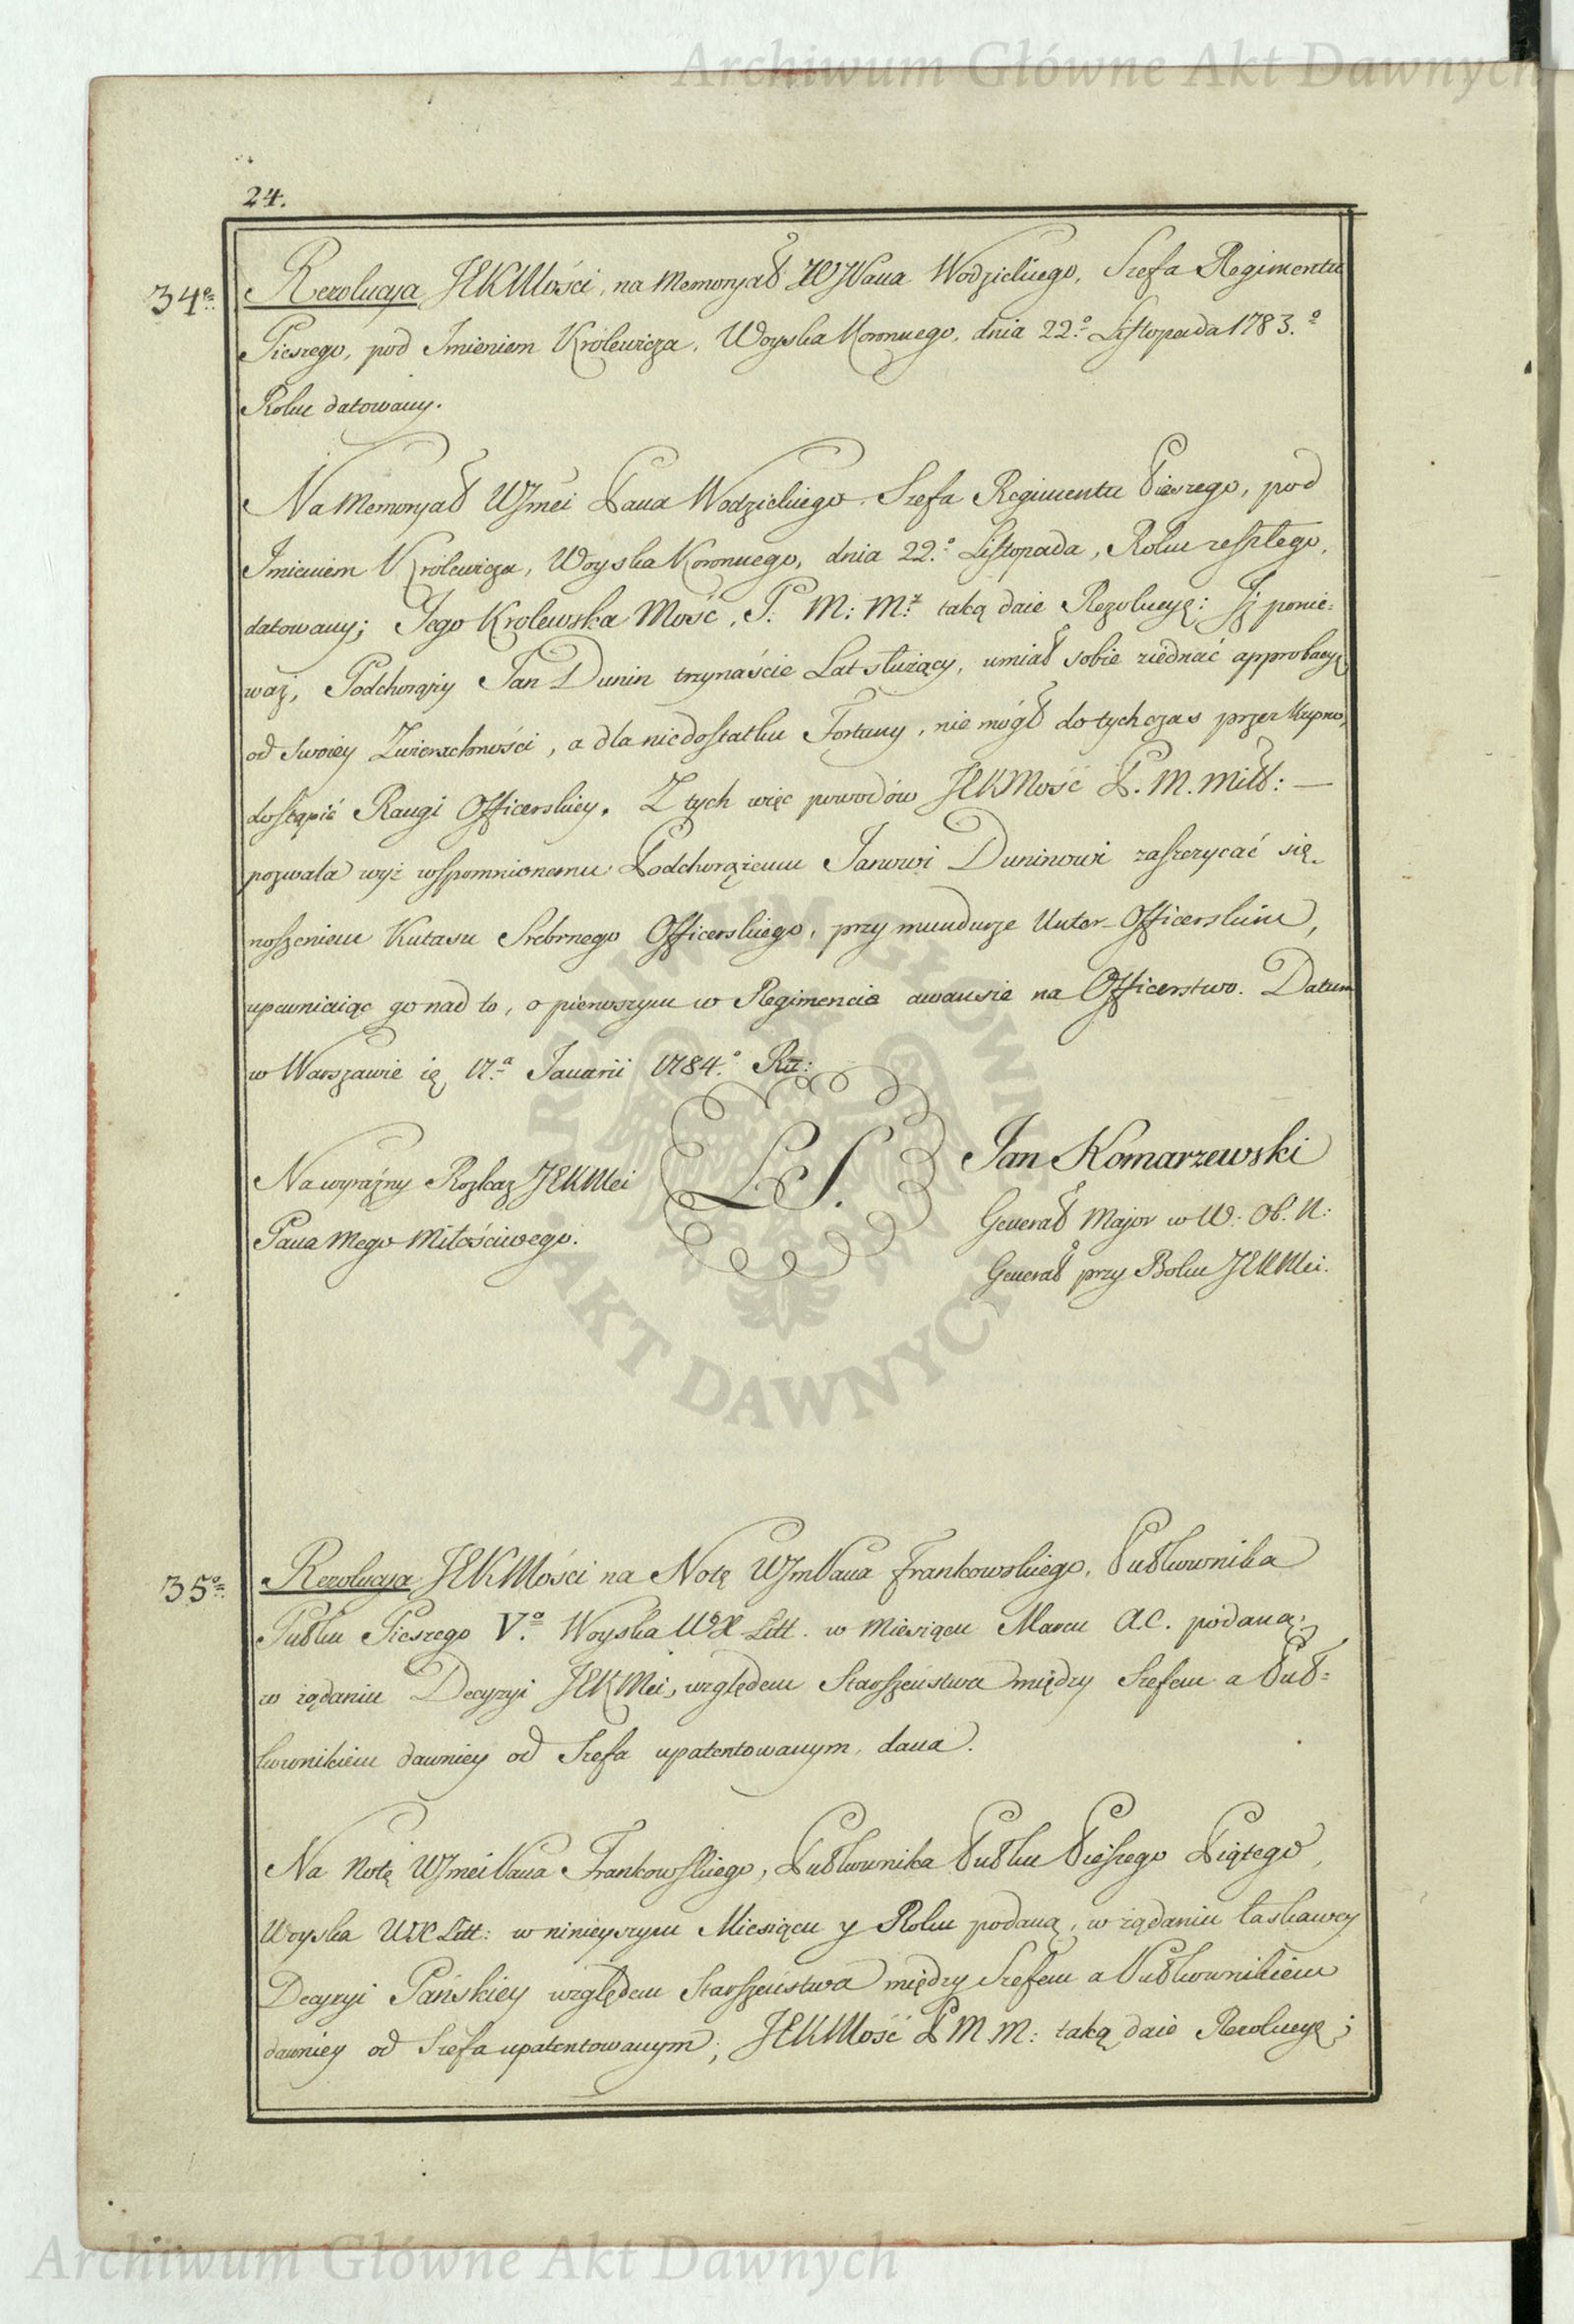 Archiwum Główne Akt Dawnych
24.
34o. Rezolucya JEKMłości, na Memoryał WJPana Wodzickiego, Szefa Regimentu
Pieszego, pod Imieniem Królewicza, Woyska Koronnego, dnia 22o. Listopada 1783.o
Roku datowany.
Na Memoryał WJmci Pana Wodzickiego Szefa Regimentu Pieszego, pod
Imieniem Królewicza, Woyska Koronnego, dnia 22.o Listopada, Roku zeszłego,
datowany; Jego Krolewska Mość, P. M: Mz. taką daie Rezolucyę: Jż ponie=
waż, Podchorąży Jan Dunin trzynaście Lat służący, umiał sobie ziednać approbacyę
od Swoiey Zwierzchności, a dla niedostatku Fortuny, nie mógł dotychczas przez kupno,
dostąpić Rangi Officerskiey. Z tych więc powodów JEKMość P. M. Miłł: —
pozwala wyż wspomnionemu Podchorążemu Janowi Duninowi zaszczycać się
noszeniem Kutasu Srebrnego Officerskiego, przy mundurze Unter-Officerskim,
upewniaiąc go nad to, o pierwszym w Regimencie awansie na Officerstwo. Datum
w Warszawie ię 17.a Januarii 1784.o Rz:
Na wyraźny Rozkaz JEKMci
Pana Mego Miłościwego.
L. S.
Jan Komarzewski
Generał Major w W: Ob. N:
Generał przy Boku JEKMci.
35o. Rezolucya JEKMłości na Notę WJmPana Frankowskiego, Pułkownika
Pułku Pieszego V.o Woyska WX Litt. w Miesiącu Marcu A.C. podaną,
w żądaniu Decyzyi JEKMci, względem Starszeństwa między Szefem a Puł=
kownikiem dawniey od Szefa upatentowanym, dana.
Na Notę WJmci Pana Frankowskiego, Pułkownika Pułku Pieszego Piątego,
Woyska WX Litt: w ninieyszym Miesiącu y Roku podaną, w żądaniu łaskawey
Decyzyi Pańskiey względem Starszeństwa między Szefem a Pułkownikiem
dawniey od Szefa upatentowanym; JEKMość P M M: taką daie Rezolucyę;
ARCHIWUM GŁÓWNE AKT DAWNYCH
Archiwum Główne Akt Dawnych